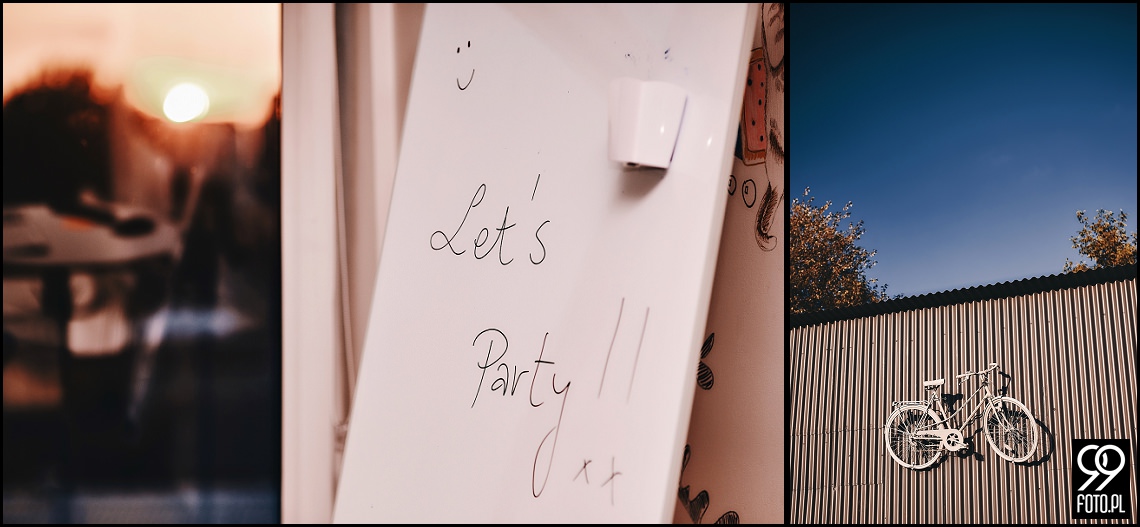 Let's
Party !!
x x
99
FOTO.PL